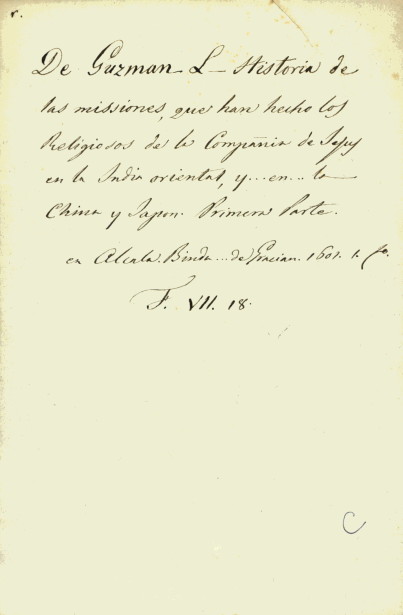 r.
De Guzman L - Historia de
las missiones, que han hecho los
Religiosos de la Compañia de Jesus
en la India oriental, y... en... la
China y Japon. Primera Parte.
en Alcala. Binda... de Gracian. 1601. 1. fo.
F. VII. 18.
C